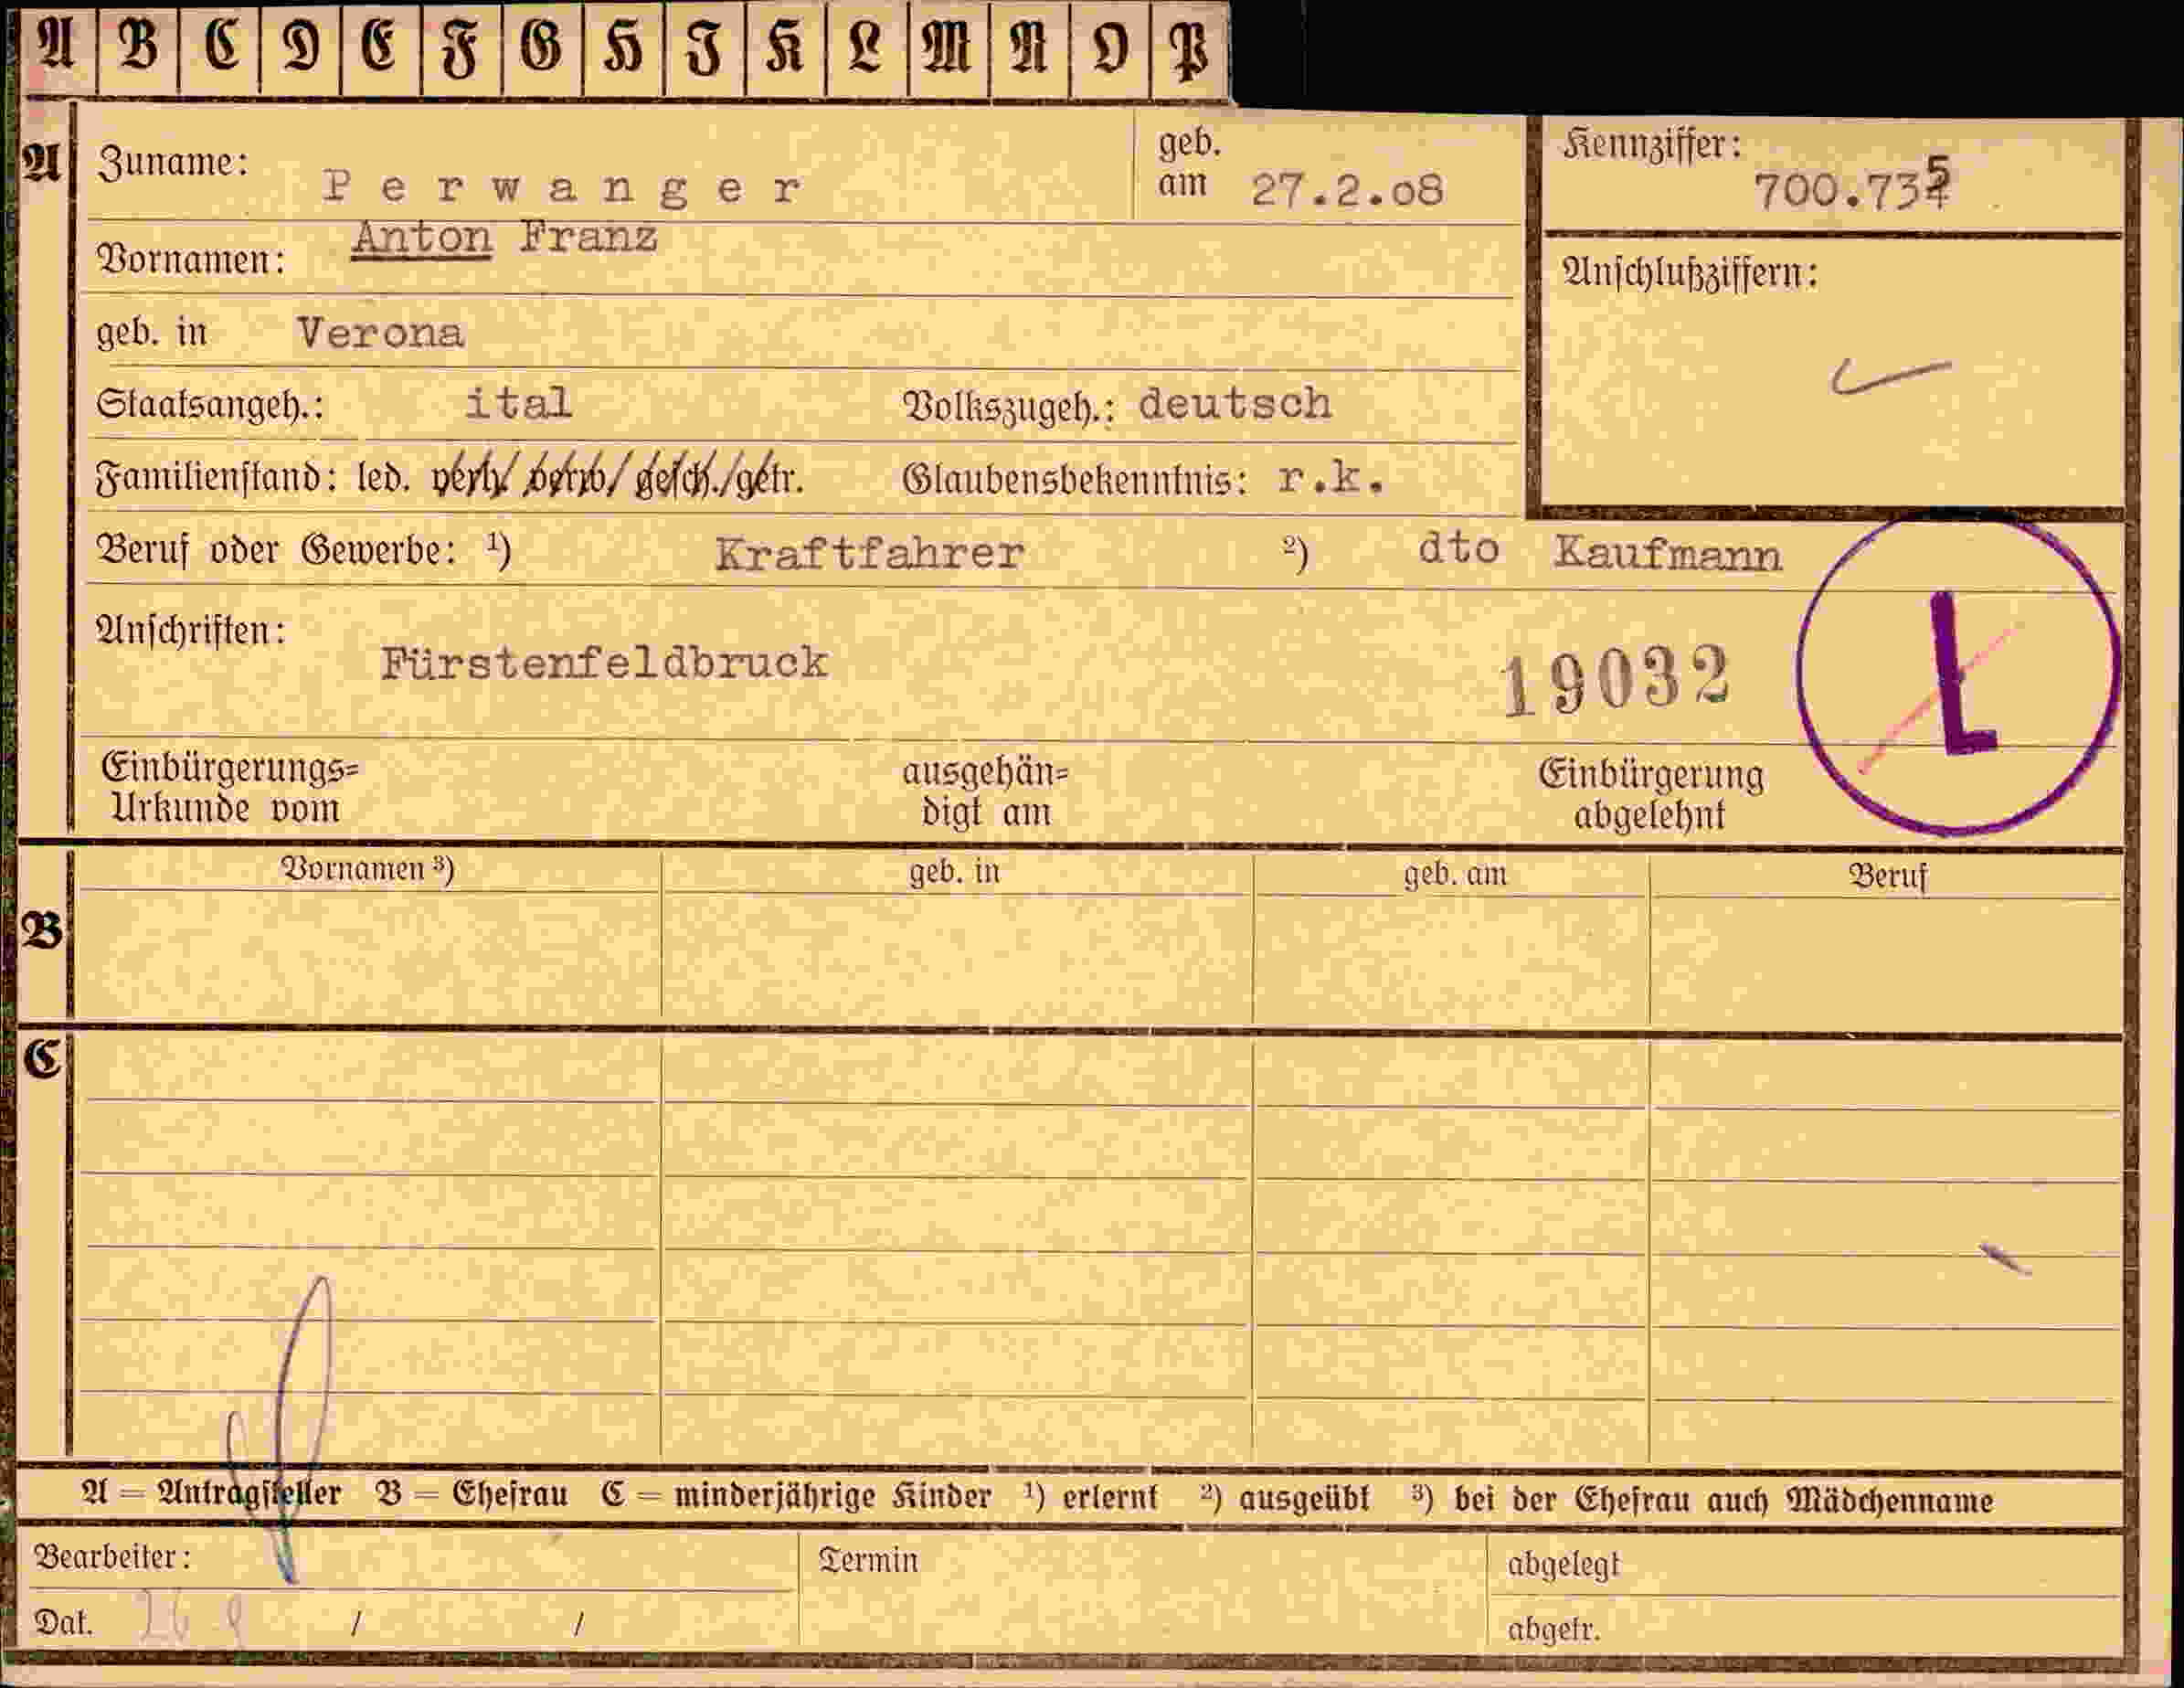 A B C D E F G H I K L M N O P
A Zuname: Perwanger geb. am 27.2.08
Kennziffer: 700.735
Vornamen: Anton Franz
Anschlußziffern:
geb. in Verona
Staatsangeh.: ital Volkszugeh.: deutsch
Familienstand: led. verh/ verw/ gesch./getr. Glaubensbekenntnis: r.k.
Beruf oder Gewerbe: ¹) Kraftfahrer ²) dto Kaufmann
Anschriften: Fürstenfeldbruck
19032 L
Einbürgerungs= Urkunde vom
ausgehän= digt am
Einbürgerung abgelehnt
B Vornamen ³) geb. in geb. am Beruf
C
A = Antragsteller B = Ehefrau C = minderjährige Kinder ¹) erlernt ²) ausgeübt ³) bei der Ehefrau auch Mädchenname
Bearbeiter: Termin abgelegt
Dat. 26 9 / / abgetr.